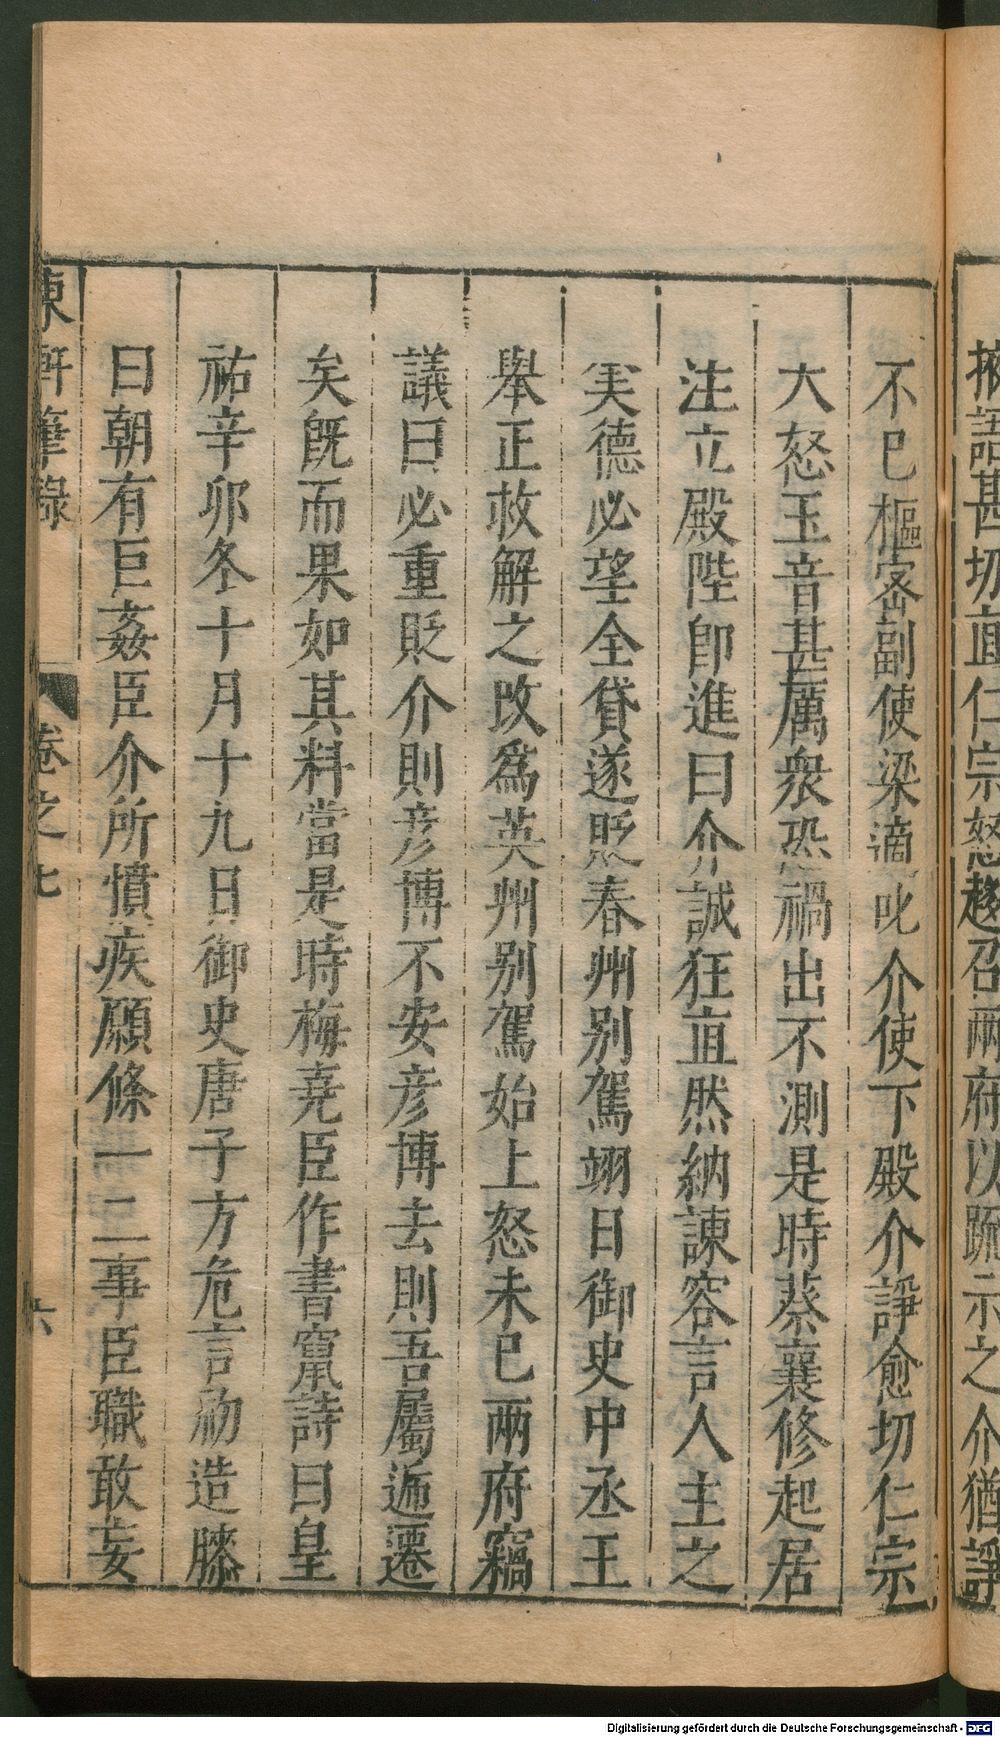 掖語甚切直仁宗怒趍召兩府以疏示之介猶諍
不已樞宻副使梁適叱介使下殿介諍愈切仁宗
大怒玉音甚厲衆恐禍出不測是時蔡襄修起居
注立殿陛卽進曰介誠狂直然納諫容言人主之
美德必望全貸遂貶春州别駕翊日御史中丞王
舉正救解之改爲英州别駕始上怒未已兩府竊
議曰必重貶介則彦博不安彦博去則吾屬遞遷
矣旣而果如其料當是時梅堯臣作書竄詩曰皇
祐辛卯冬十月十九日御史唐子方危言初造膝
曰朝有巨姦臣介所憤疾願條一二事臣職敢妄
東軒筆錄 卷之七 六
Digitalisierung gefördert durch die Deutsche Forschungsgemeinschaft - DFG